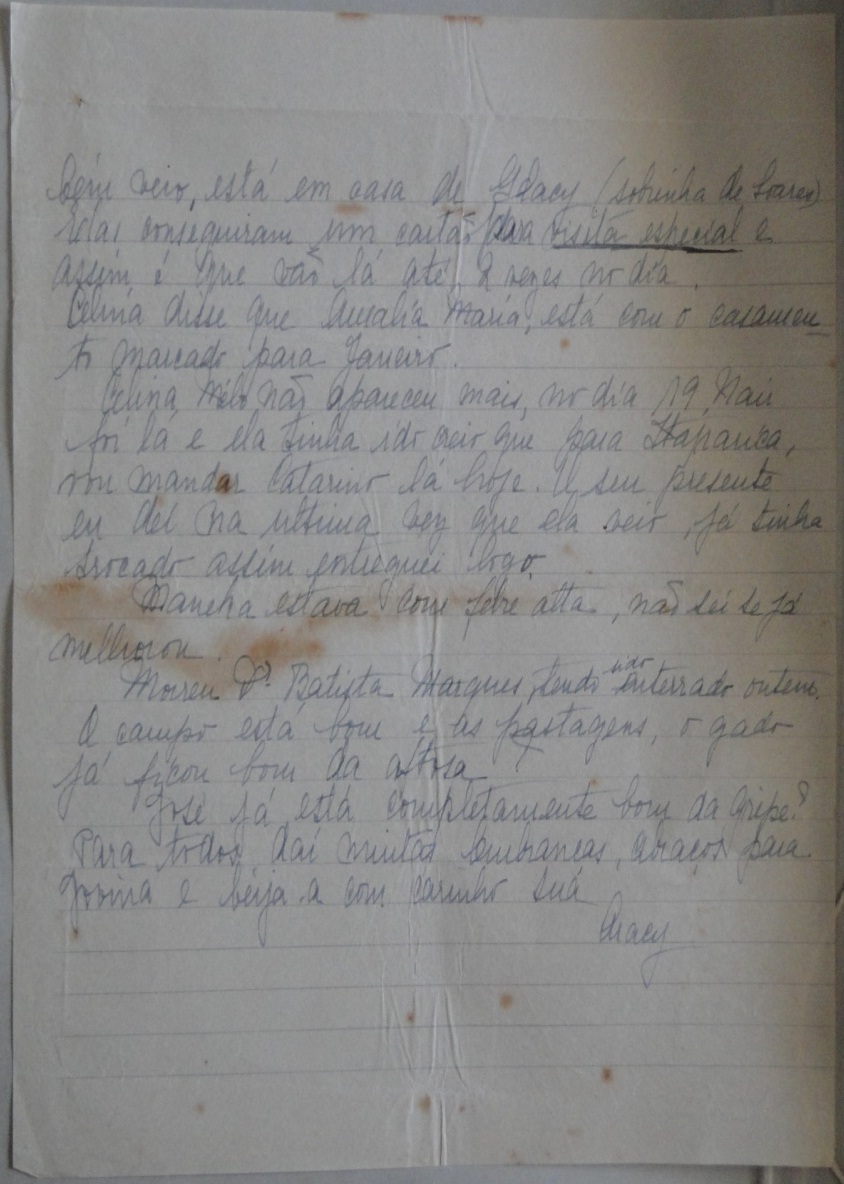 bém veio, está em casa de Gdacy (sobrinha de Soares)
elas conseguiram um cartão para visita especial e
assim é que vão lá até 2 vezes no dia.
Celina disse que Amalia Maria, está com o casamen-
to marcado para Janeiro.
Celina Mélo não apareceu mais, no dia 19, Nair
foi lá e ela tinha ido creio que para Itaparica,
vou mandar Catarino lá hoje. O seu presente
eu dei na ultima vez que ela veio, já tinha
trocado assim entreguei logo.
estava com febre alta, não sei se já
melhorou.
Morreu Dr. Batista Marques, tendo sido enterrado ontem.
O campo está bom e as pastagens, o gado
já ficou bom da aftosa.
José já está completamente bom da gripe?
Para todos daí muitas lembranças, abraços para
Jovina e beija-a com carinho sua
Aracy